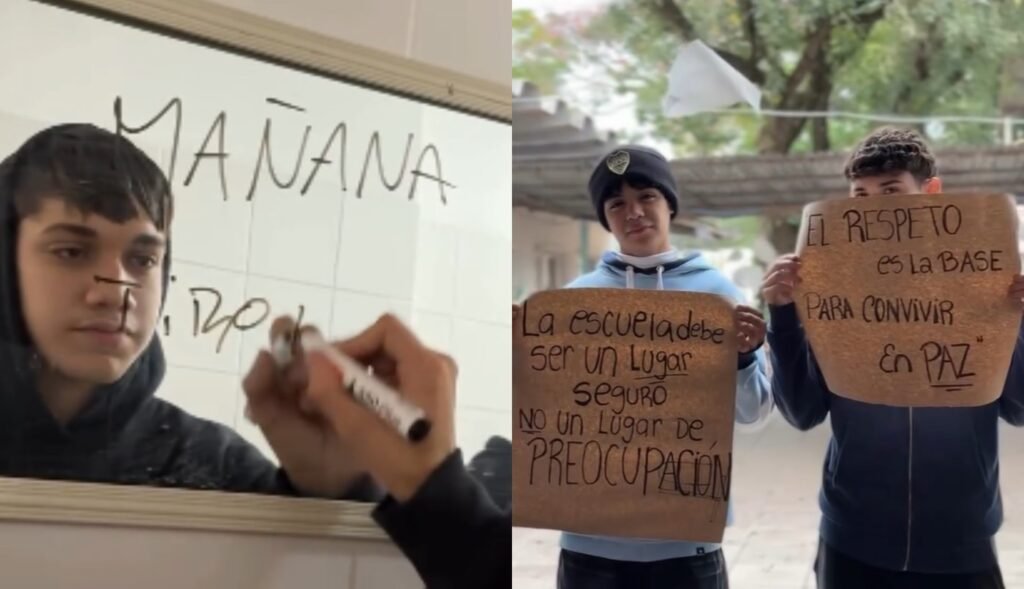 MAÑANA
TiRO
La escuela debe
ser un Lugar
seguro
NO un Lugar de
PREOCUPACIÓN
EL RESPETO
es La BASE
PARA CONVIVIR
En PAZ"